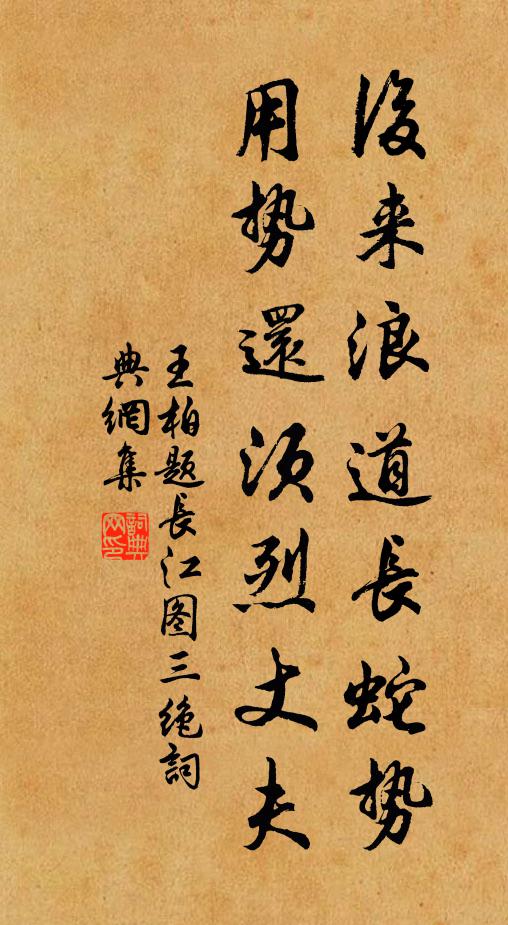 後来浪道長蛇勢
用勢還須烈丈夫
王柏題長江图三绝詞
典網集
詞典网印